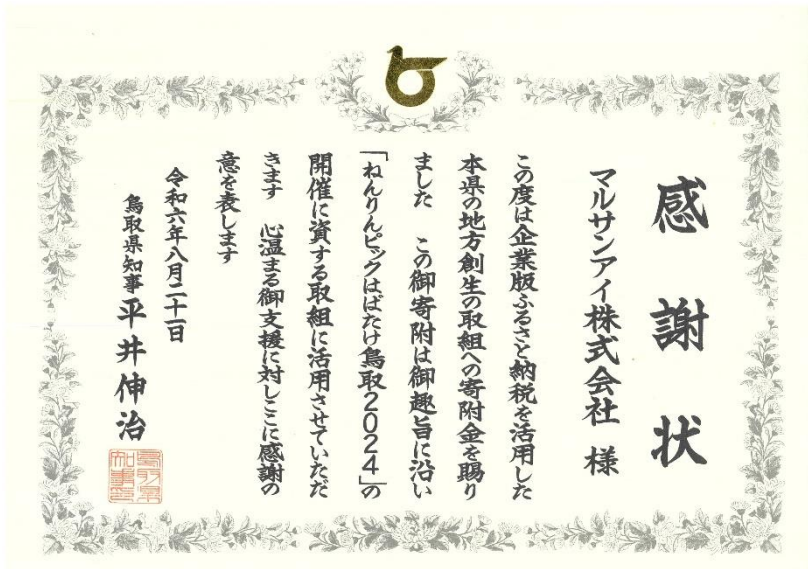 感謝状
マルサンアイ株式会社 様
この度は企業版ふるさと納税を活用した
本県の地方創生の取組への寄附金を賜り
ました この御寄附は御趣旨に沿い
「ねんりんピックはばたけ鳥取2024」の
開催に資する取組に活用させていただ
きます 心温まる御支援に対しここに感謝の
意を表します
令和六年八月二十一日
鳥取県知事 平井伸治
鳥取県知事印